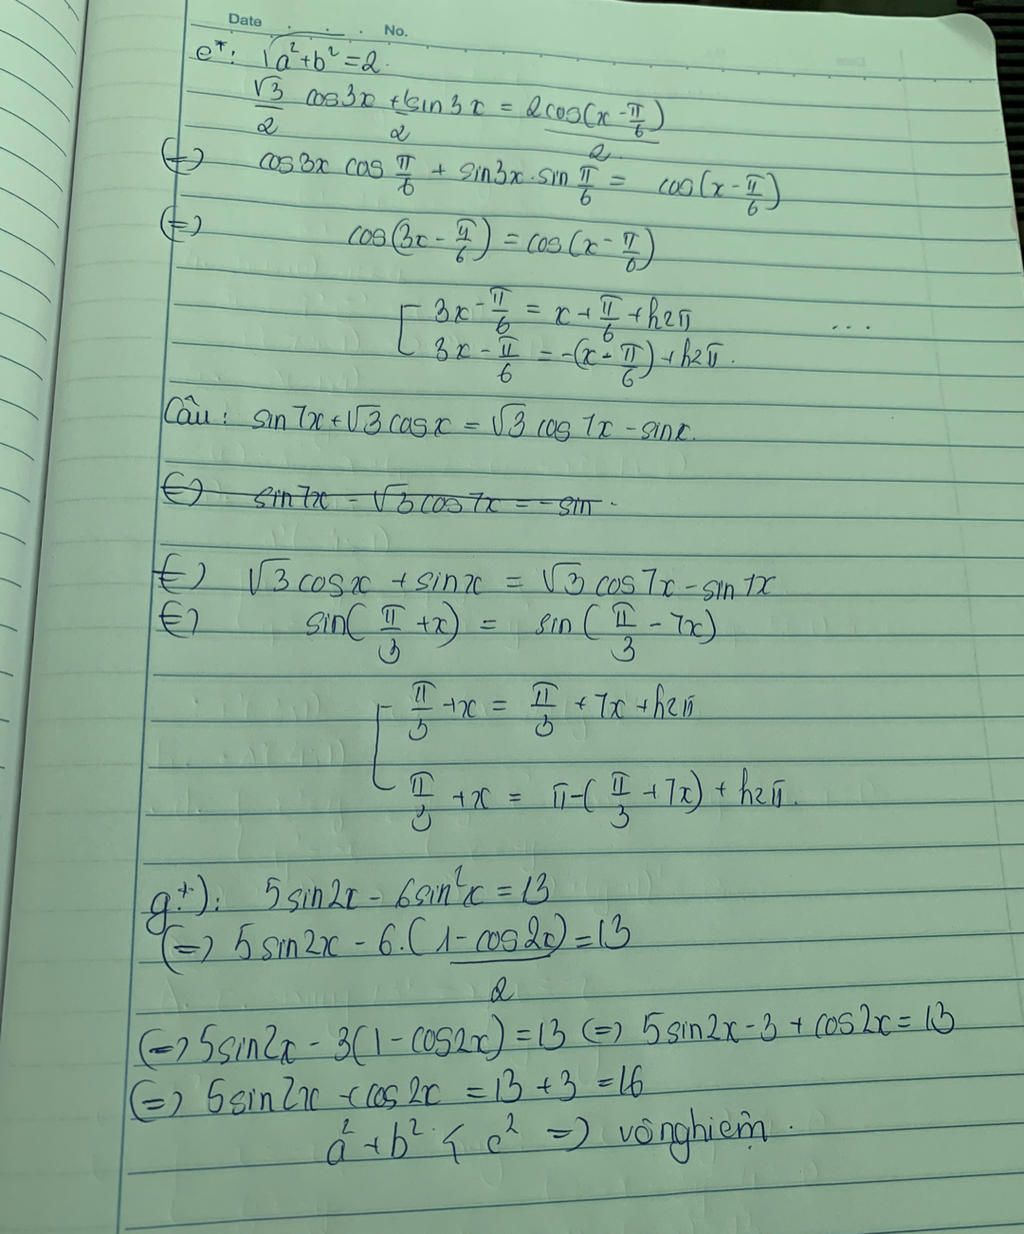 Date . . . No.
e*: √a²+b² = 2.
√3/2 cos3x + 1/2 sin3x = 2cos(x - π/6)/2
(=) cos3x cos π/6 + sin3x . sin π/6 = cos(x - π/6)
(=) cos(3x - π/6) = cos(x - π/6)
[ 3x - π/6 = x + π/6 + k2π ...
3x - π/6 = -(x - π/6) + k2π.
Câu: sin7x + √3 cosx = √3 cos7x - sinx.
(=) sin7x - √3 cos7x = - sin .
(=) √3 cosx + sinx = √3 cos7x - sin7x
(=) sin(π/3 + x) = sin(π/3 - 7x)
[ π/3 + x = π/3 + 7x + k2π
π/3 + x = π - (π/3 + 7x) + k2π.
g*): 5sin2x - 6sin²x = 13
(=) 5sin2x - 6.(1 - cos2x)/2 = 13
(=) 5sin2x - 3(1 - cos2x) = 13 (=) 5sin2x - 3 + cos2x = 13
(=) 5sin2x + cos2x = 13 + 3 = 16
a² + b² < c² => vô nghiệm.